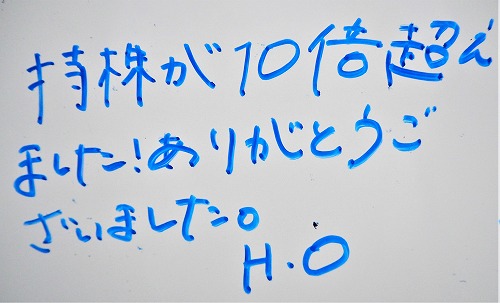 持株が10倍超え
ました!ありがとうご
ざいました。
H.O